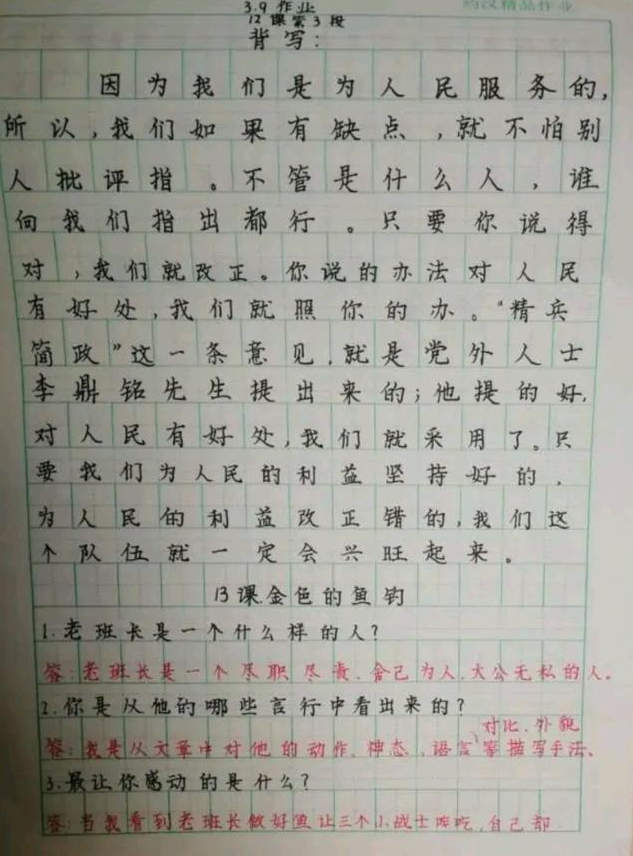 精品作业
3.9作业
12课第3段
背写：
因为我们是为人民服务的，
所以，我们如果有缺点，就不怕别
人批评指。不管是什么人，谁
向我们指出都行。只要你说得
对，我们就改正。你说的办法对人民
有好处，我们就照你的办。“精兵
简政”这一条意见，就是党外人士
李鼎铭先生提出来的；他提的好，
对人民有好处，我们就采用了。只
要我们为人民的利益坚持好的，
为人民的利益改正错的，我们这
个队伍就一定会兴旺起来。
13课.金色的鱼钩
1.老班长是一个什么样的人？
答：老班长是一个尽职尽责、舍己为人、大公无私的人。
2.你是从他的哪些言行中看出来的？
对比、外貌
答：我是从文章中对他的动作、神态、语言等描写手法。
3.最让你感动的是什么？
答：当我看到老班长做好鱼让三个小战士吃，自己却